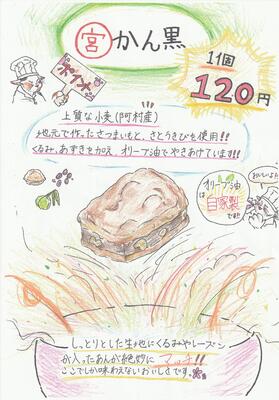 宮かん黒
1個
120円
ポイント
上質な小麦(阿村産)
地元で作ったさつまいもと、さとうきびを使用!!
くるみ、あずきを加え、オリーブ油でやきあげています!!
オリーブ油
は
自家製
です!!
おいしいよ!
しっとりとした生地にくるみやレーズン
が入ったあんが絶妙にマッチ!!
ここでしか味わえないおいしさです。